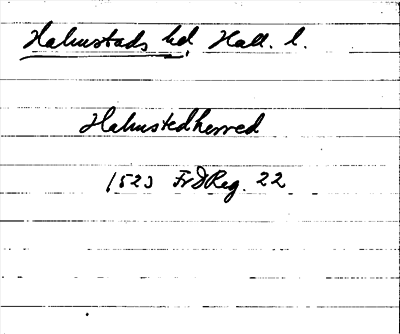 Halmstads hd, Hall. l.
Halmstedherred
1523 Fr. I Reg. 22